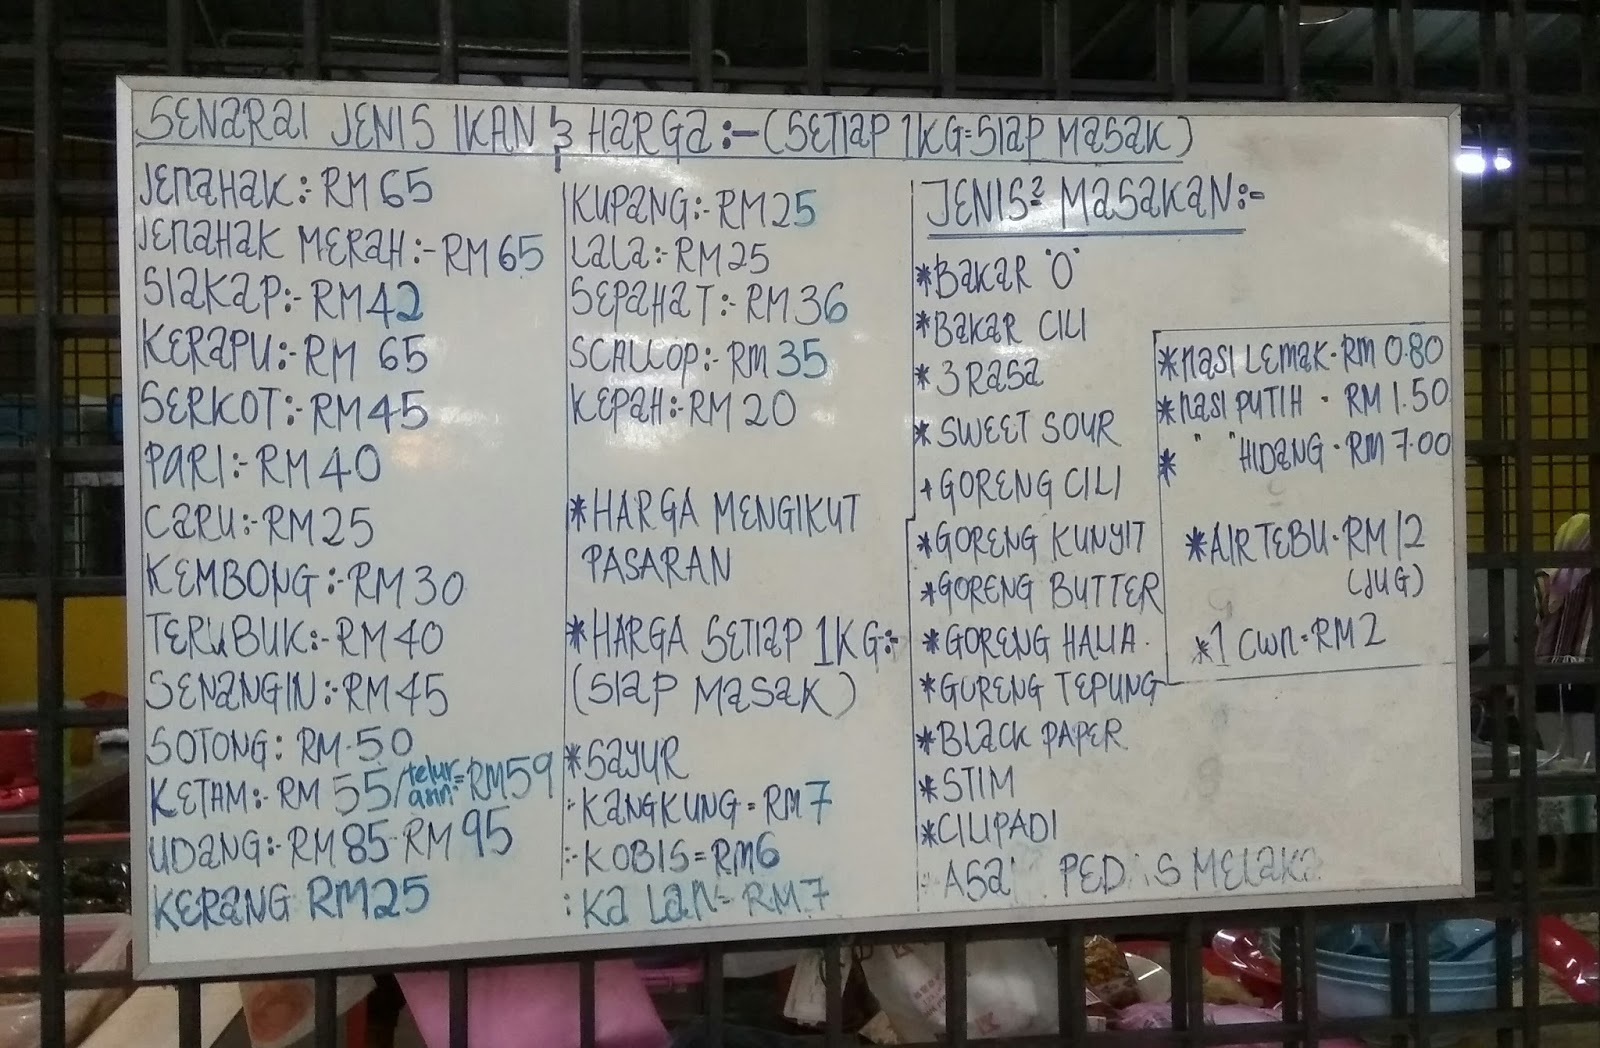 SENARAI JENIS IKAN & HARGA :- (SETIAP 1KG=SIAP MASAK)
JENAHAK:- RM 65
JENAHAK MERAH:- RM 65
SIAKAP:- RM 42
KERAPU:- RM 65
SERKOT:- RM 45
PARI:- RM 40
CARU:- RM 25
KEMBONG:- RM 30
TERUBUK:- RM 40
SENANGIN:- RM 45
SOTONG: RM 50
KETAM:- RM 55/telur asin:= RM 59
UDANG:- RM 85-RM 95
KERANG RM25
KUPANG:- RM 25
LALA:- RM 25
SEPAHAT:- RM 36
SCALLOP:- RM 35
KEPAH:- RM 20
*HARGA MENGIKUT
PASARAN
*HARGA SETIAP 1KG:-
(SIAP MASAK)
*SAYUR
:- KANGKUNG = RM 7
:- KOBIS = RM6
: KA LAN= RM7
JENIS² MASAKAN:-
*BAKAR "O"
*BAKAR CILI
*3 RASA
*SWEET SOUR
+GORENG CILI
*GORENG KUNYIT
*GORENG BUTTER
*GORENG HALIA.
*GORENG TEPUNG
*BLACK PAPER
*STIM
*CILIPADI
:- ASA PED S MELAKA
*NASI LEMAK-RM 0.80
*NASI PUTIH - RM 1.50
* " " HIDANG - RM 7.00
*AIR TEBU-RM 12
(JUG)
*1 CWN=RM2